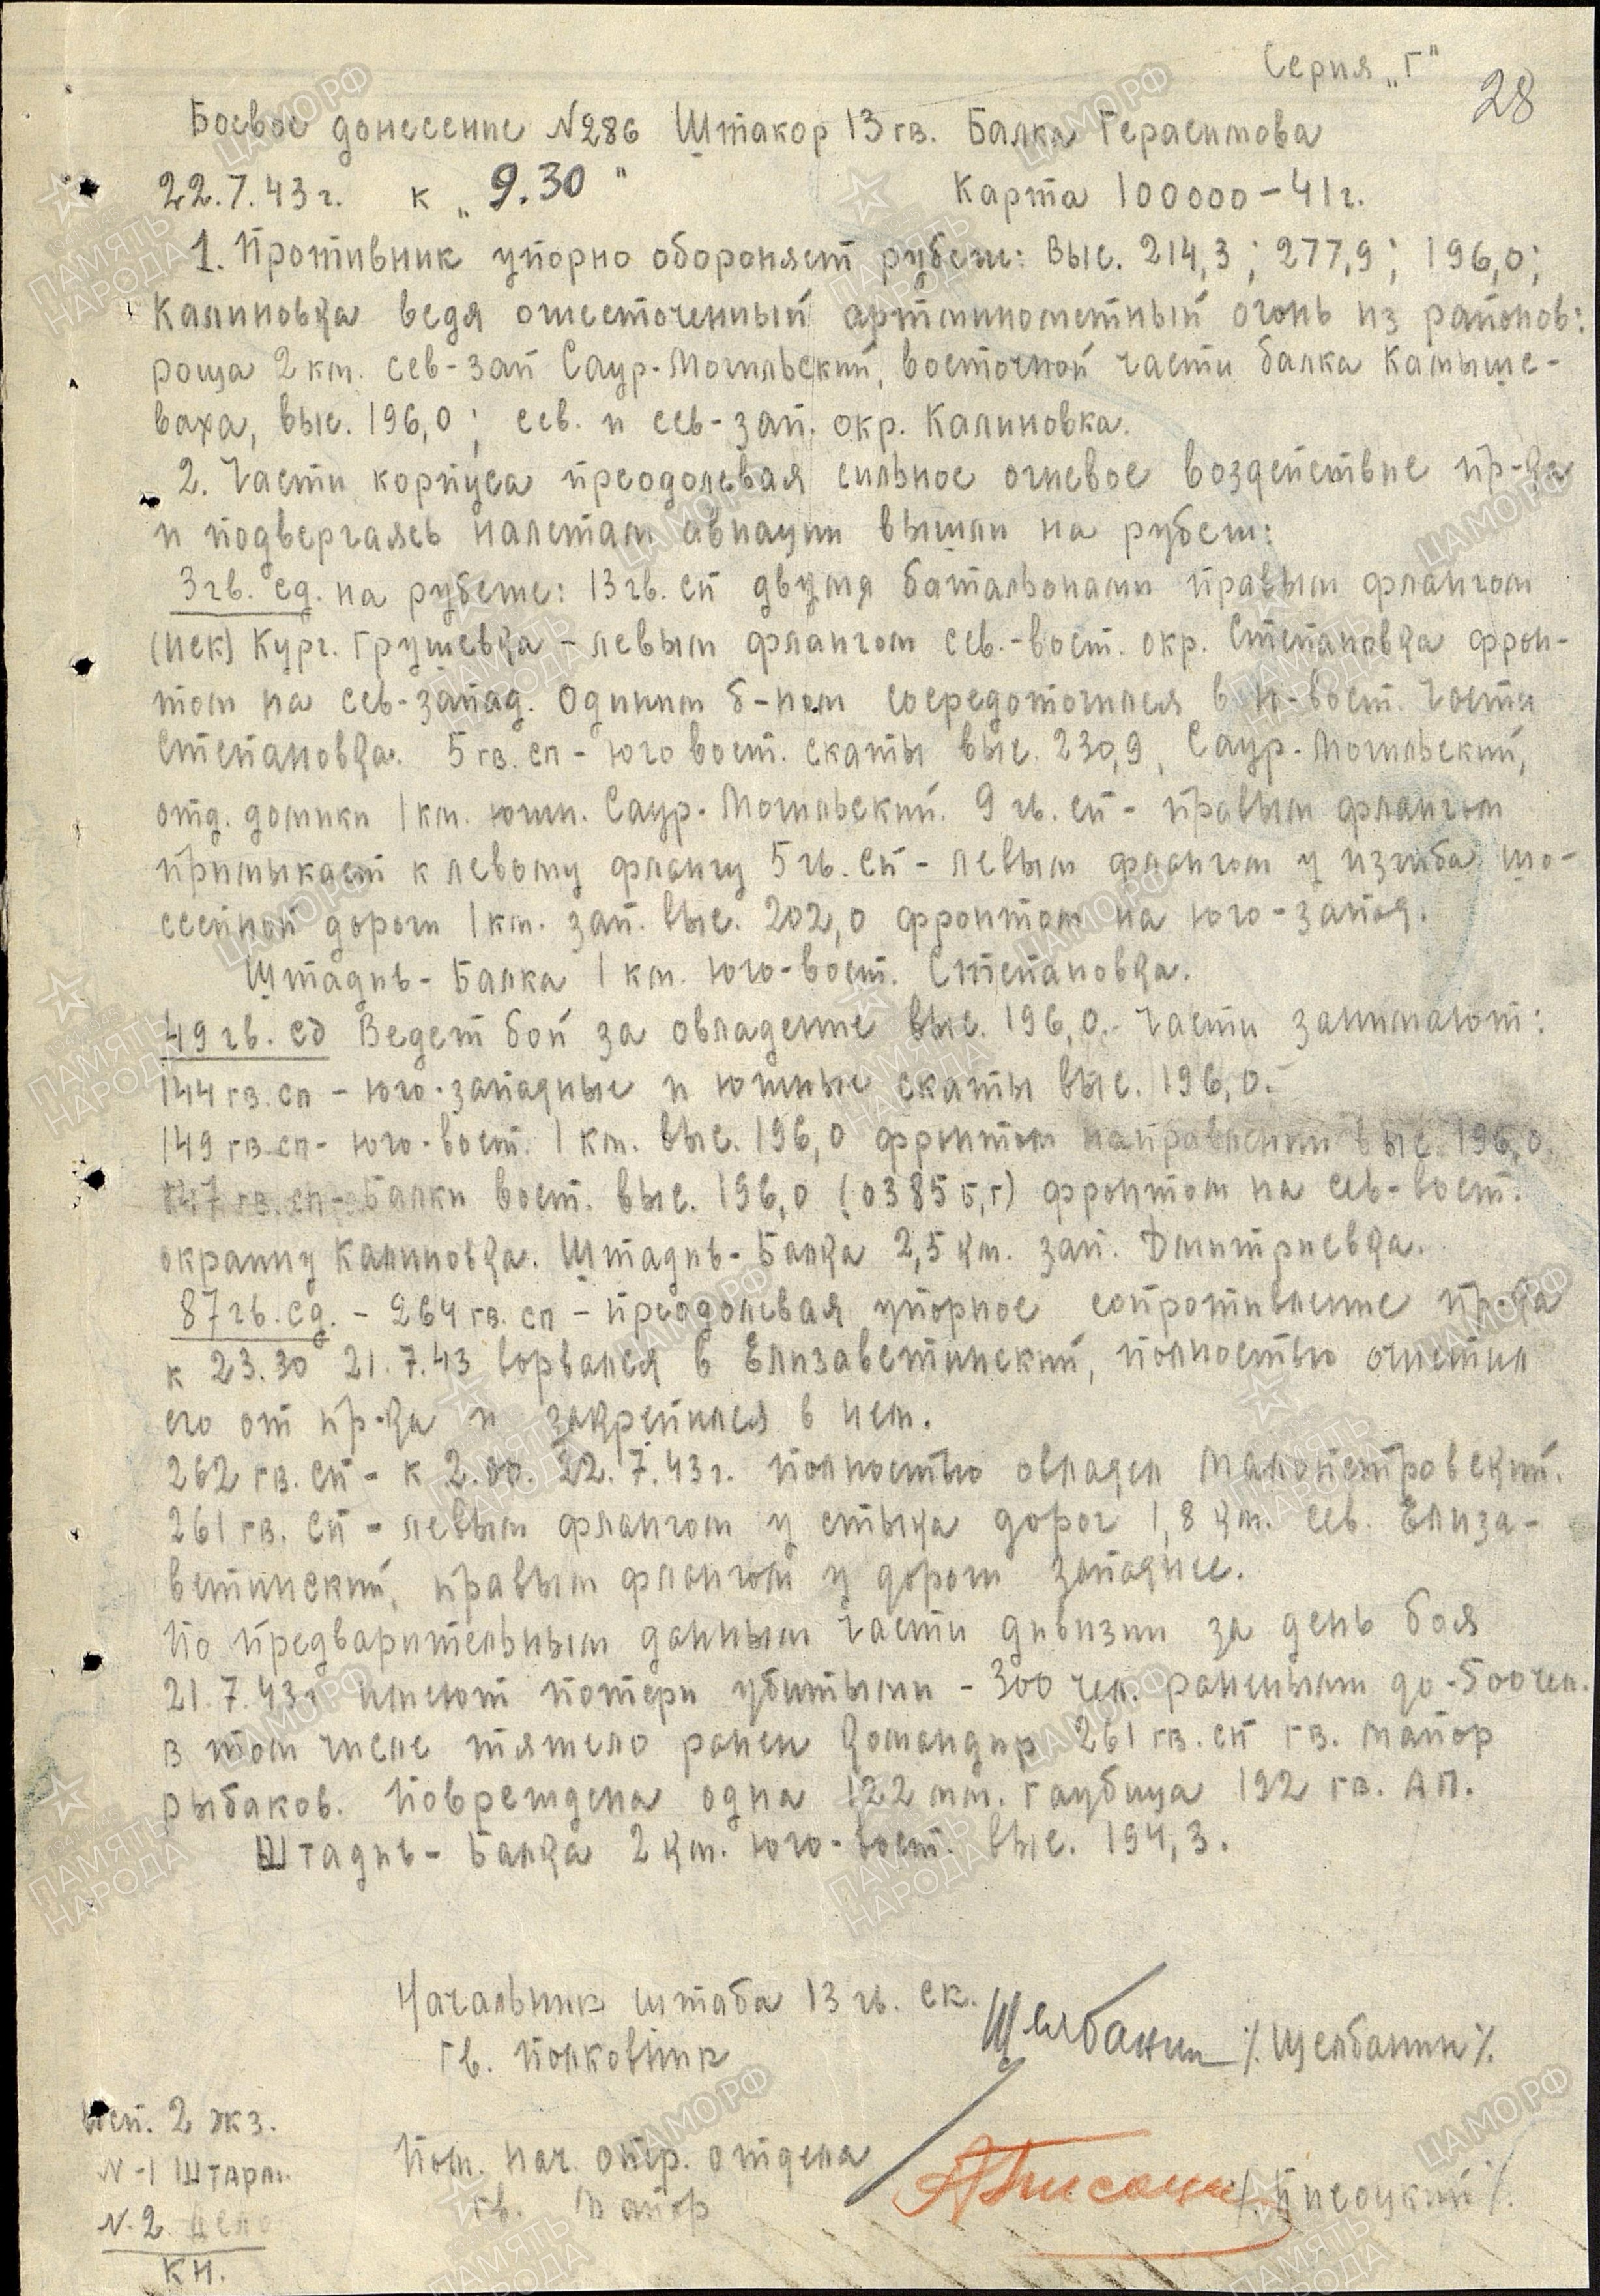 Серия „Г"
28
Боевое донесение №286 Штакор 13 гв. Балка Герасимова
22.7.43 г. к „9.30" Карта 100000-41 г.
1. Противник упорно обороняет рубеж: выс. 214,3; 277,9; 196,0;
Калиновка ведя ожесточенный артминометный огонь из районов:
роща 2 км. сев-зап Саур-Могильский, восточной части балка Камыше-
ваха, выс. 196,0; сев. и сев-зап. окр. Калиновка.
2. Части корпуса преодолевая сильное огневое воздействие пр-ка
и подвергаясь налетам авиации вышли на рубеж:
3 гв. сд. на рубеже: 13 гв. сп двумя батальонами правым флангом
(иск) Кург. Грушевка - левым флангом сев.-вост. окр. Степановка фрон-
том на сев-запад. Одним б-ном сосредоточился в ю-вост. части
Степановка. 5 гв. сп - юго вост. скаты выс. 230,9, Саур-Могильский,
отд. домики 1 км. южн. Саур-Могильский. 9 гв. сп - правым флангом
примыкает к левому флангу 5 гв. сп - левым флангом у изгиба шо-
ссейной дороги 1 км. зап. выс. 202,0 фронтом на юго-запад.
Штадив - Балка 1 км. юго-вост. Степановка.
49 гв. сд Ведет бой за овладение выс. 196,0. Части занимают:
144 гв. сп - юго-западные и южные скаты выс. 196,0.
149 гв. сп - юго-вост. 1 км. выс. 196,0 фронтом направлении выс. 196,0.
147 гв. сп - балки вост. выс. 196,0 (0385 б,г) фронтом на сев-вост.
окраину Калиновка. Штадив - Балка 2,5 км. зап. Дмитриевка.
87 гв. сд. - 264 гв. сп - преодолевая упорное сопротивление пр-ка
к 23.30 21.7.43 ворвался в Елизаветинский, полностью очистил
его от пр-ка и закрепился в нем.
262 гв. сп - к 2.00. 22.7.43 г. полностью овладел Малопетровский.
261 гв. сп - левым флангом у стыка дорог 1,8 км. сев. Елиза-
ветинский, правым флангом у дороги западнее.
По предварительным данным части дивизии за день боя
21.7.43 г имеют потери убитыми - 300 чел. раненым до - 600 чел.
в том числе тяжело ранен командир 261 гв. сп гв. майор
Рыбаков. Повреждена одна 122 мм. гаубица 192 гв. АП.
Штадив - Балка 2 км. юго-вост. выс. 194,3.
Начальник штаба 13 гв. ск.
гв. полковник Щелбанин /. Щелбанин /.
Пом. нач. опер. отдела
гв. майор /. Писоцкий /.
Исп. 2 экз.
№-1 Штарм.
№.2. Дело
КН.